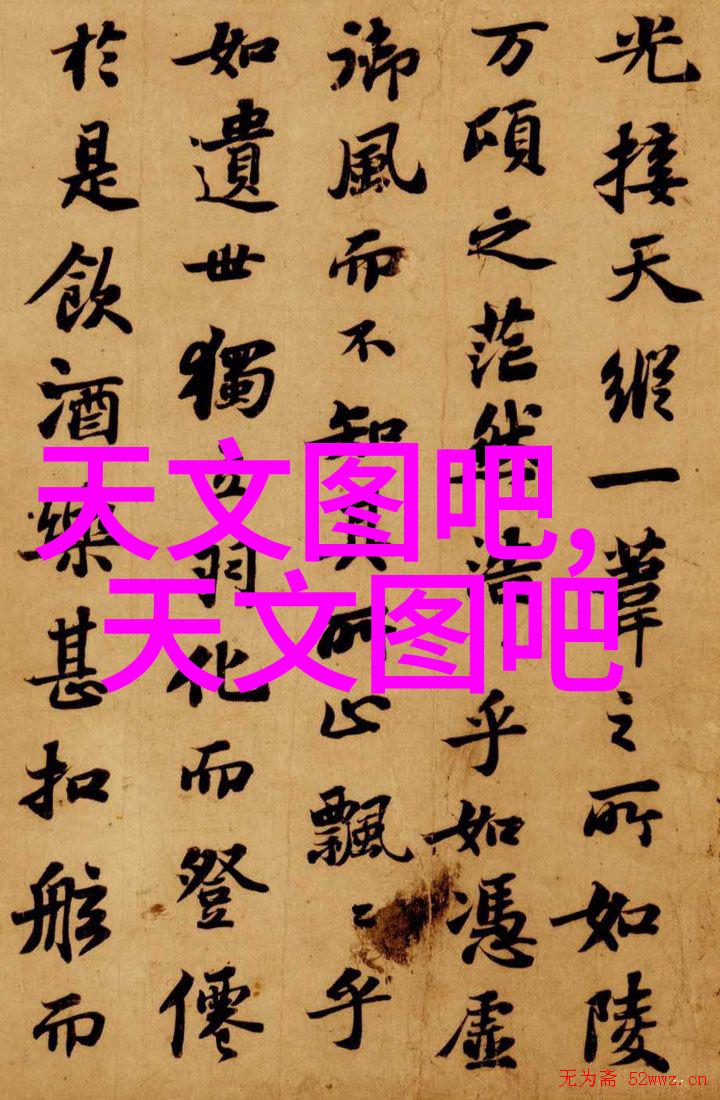 光接天縱一葦之所如陵
万頃之茫然浩乎如憑虛
御風而不知其所止飄〻乎
如遺世獨立羽化而登僊
於是飲酒樂甚扣舷而
天文图吧,
天文图吧
无为斋 52wwz.cn